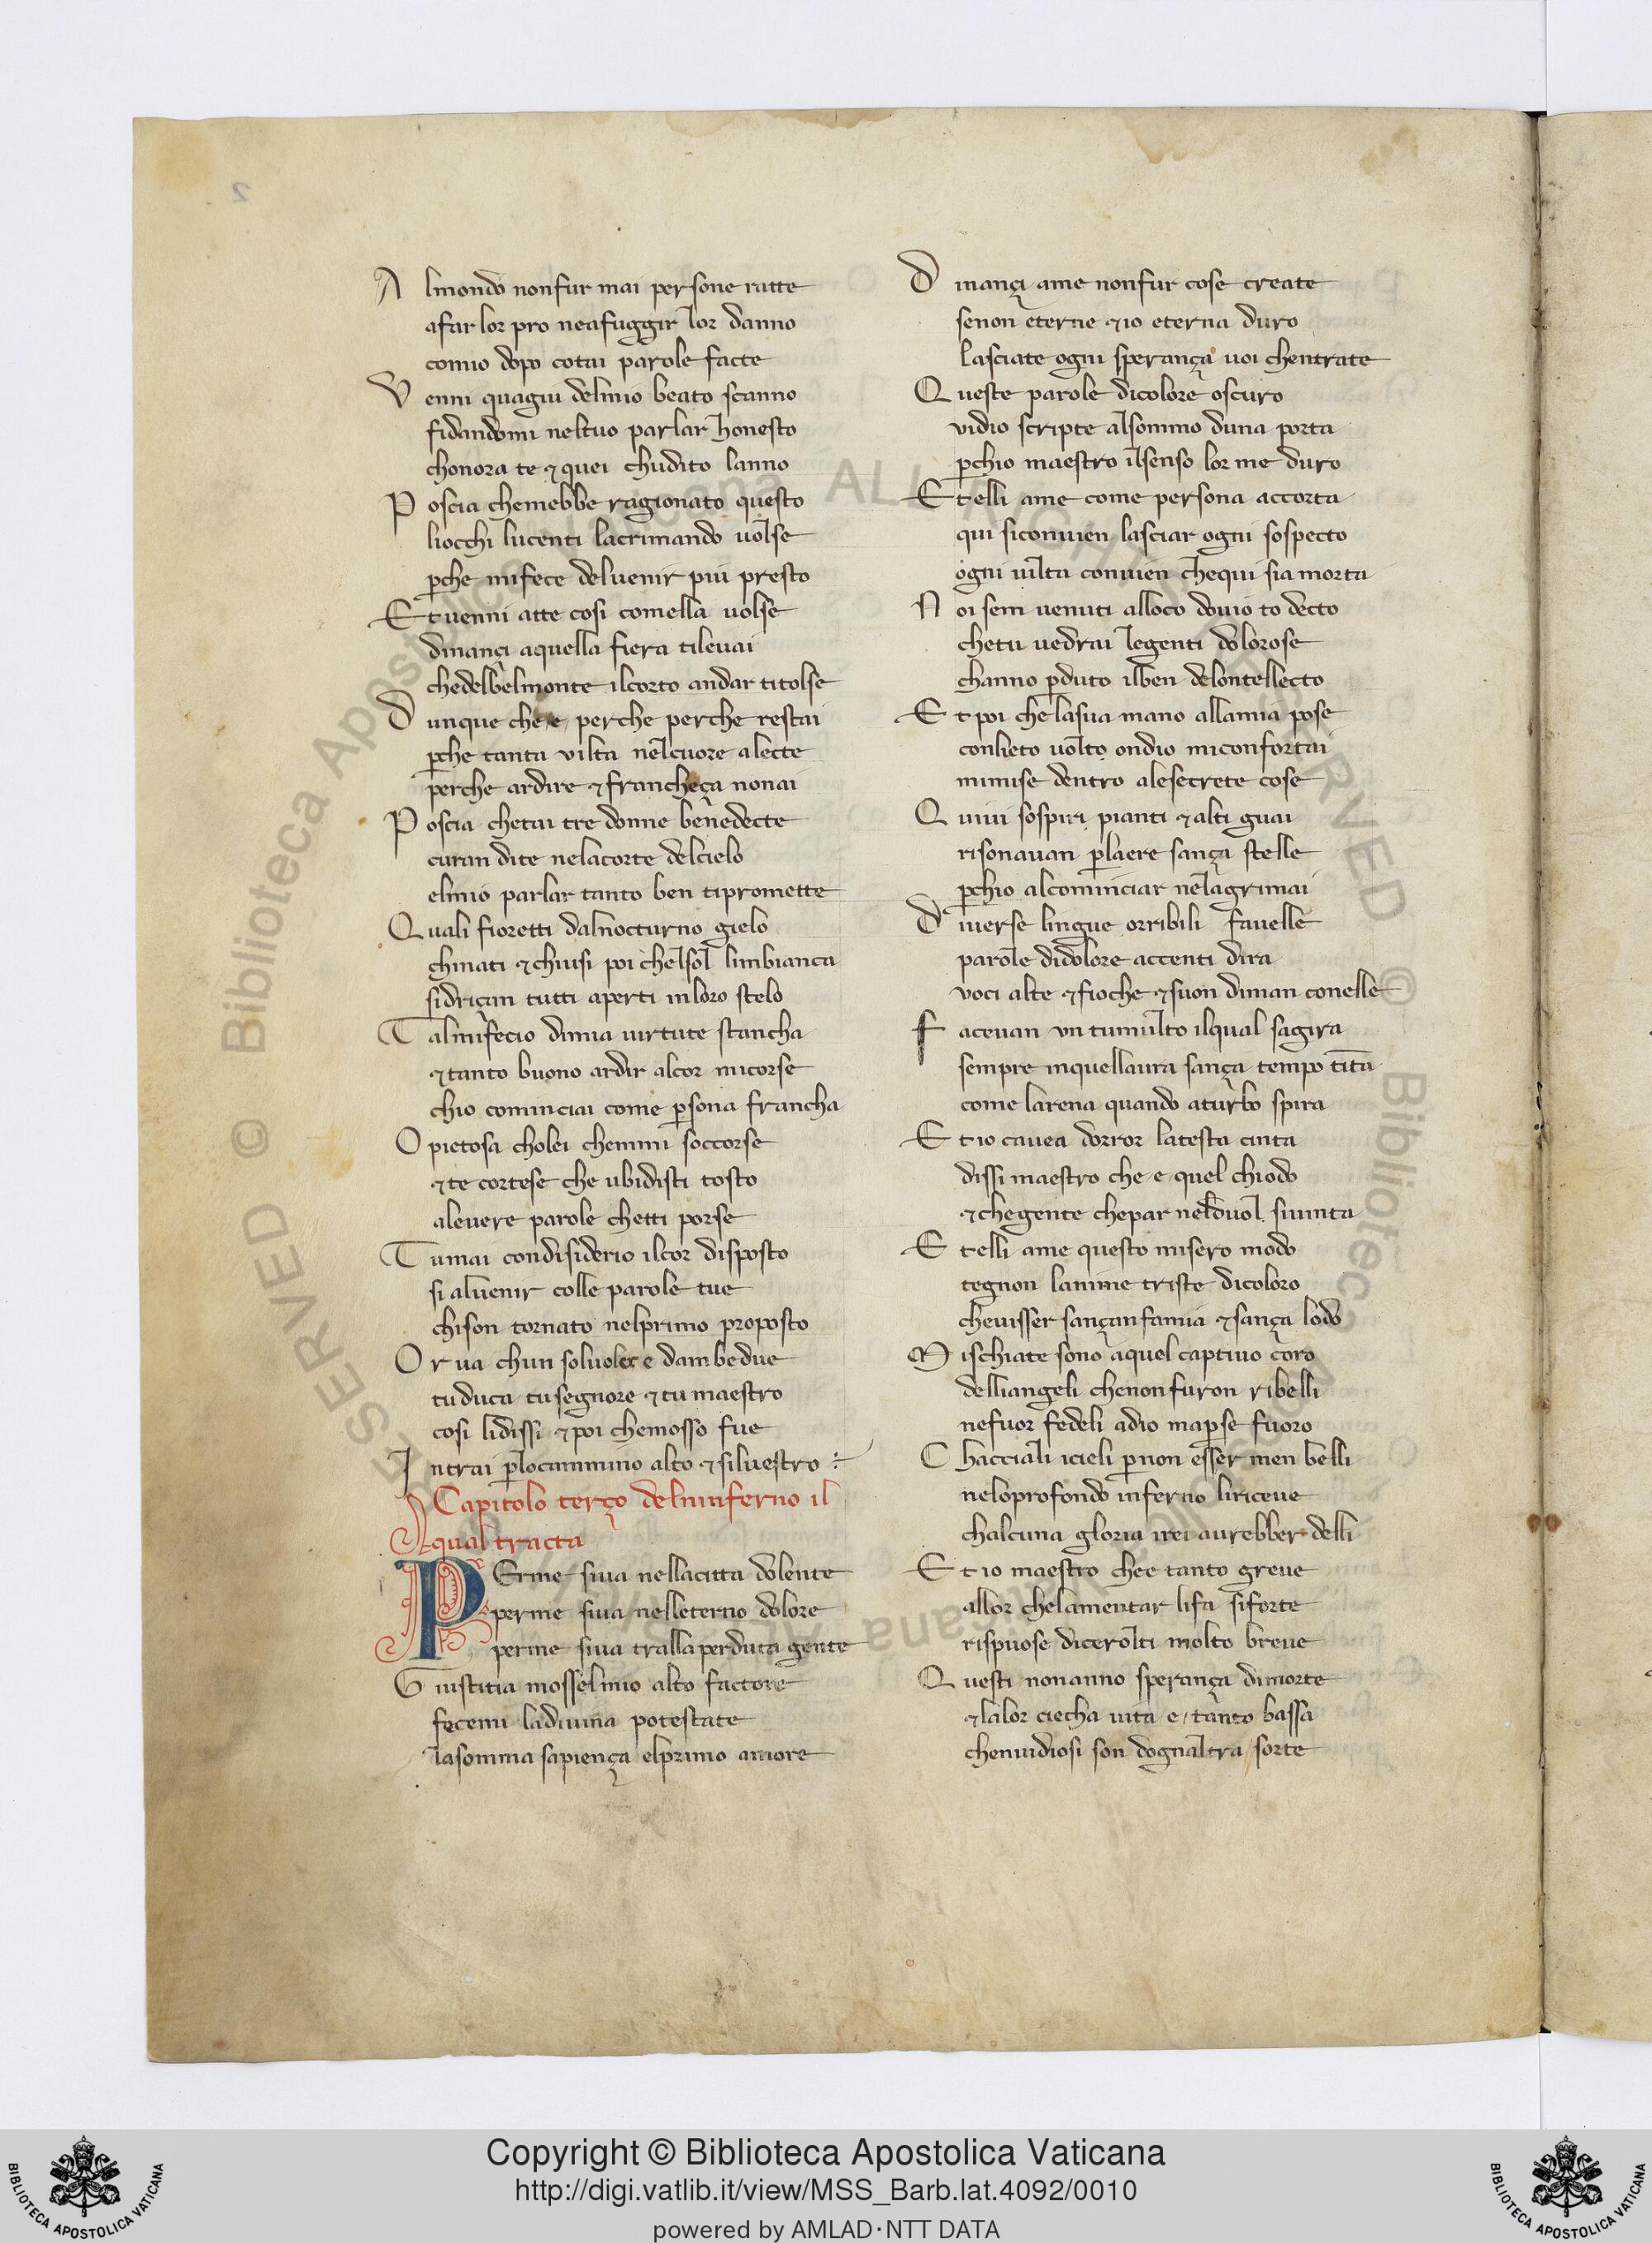 A lmondo nonfur mai persone ratte
afar lor pro neafuggir lor danno
comio dopo cotai parole facte
V enni quagiu delmio beato scanno
fidandomi neltuo parlar honesto
chonora te ⁊ quei chudito lanno
P oscia chemebbe ragionato questo
liocchi lucenti lacrimando uolse
ꝑche mifece deluenir piu presto
E t uenni atte cosi comella uolse
dinançi aquella fiera tileuai
chedelbelmonte ilcorto andar titolse
D unque che e perche perche restai
ꝑche tanta vilta nelcuore alecte
perche ardire ⁊ francheça nonai
P oscia chetai tre donne benedecte
curan dite nelacorte delcielo
elmio parlar tanto ben tipromette
Q uali fioretti dalnocturno gielo
chinati ⁊ chiusi poi chelsol limbianca
sidriçan tutti aperti inloro stelo
T almifecio dimia uirtute stancha
⁊ tanto buono ardir alcor micorse
chio cominciai come ꝑsona francha
O pietosa cholei chemmi soccorse
⁊ te cortese che ubidisti tosto
aleuere parole chetti porse
T umai condisiderio ilcor disposto
si aluenir colle parole tue
chison tornato nelprimo proposto
O r ua chun soluolere dambedue
tu duca tu segnore ⁊ tu maestro
cosi lidissi ⁊ poi chemosso fue
I ntrai ꝑlocammino alto ⁊ siluestro
Capitolo terço delminferno il
qual tracta
P Erme siua nellacitta dolente
perme siua nelleterno dolore
perme siua tralla perduta gente
G iustitia mosselmio alto factore
fecemi ladiuina potestate
lasomma sapiença elprimo amore
D inançi ame nonfur cose create
senon eterne ⁊ io eterna duro
lasciate ogni sperança uoi chentrate
Q ueste parole dicolore oscuro
vidio scripte alsommo duna porta
ꝑchio maestro ilsenso lor me duro
E t elli ame come persona accorta
qui siconuien lasciar ogni sospecto
ogni uilta conuien chequi sia morta
N oi sem uenuti alloco douio to decto
chetu uedrai legenti dolorose
channo ꝑduto ilben delontellecto
E t poi che lasua mano allamia pose
conlieto uolto ondio miconfortai
mimise dentro alesecrete cose
Q uiui sospiri pianti ⁊ alti guai
risonauan ꝑlaere sança stelle
ꝑchio alcominciar nelagrimai
D iuerse lingue orribili fauelle
parole didolore accenti dira
voci alte ⁊ fioche ⁊ suon diman conelle
F aceuan vn tumulto ilqual sagira
sempre inquellaura sança tempo tita
come larena quando aturbo spira
E t io cauea dorror latesta cinta
dissi maestro che e quel chiodo
⁊ chegente chepar nelduol siuinta
E t elli ame questo misero modo
tegnon lanime triste dicoloro
cheuisser sançanfamia ⁊ sança lodo
M ischiate sono aquel captiuo coro
delliangeli chenonfuron ribelli
nefuor fedeli adio maꝑse fuoro
C hacciali icieli ꝑnon esser men belli
neloprofondo inferno liriceue
chalcuna gloria irei aurebber delli
E t io maestro chee tanto greue
allor chelamentar lifa siforte
rispuose dicerolti molto breue
Q uesti nonanno sperança dimorte
⁊ lalor ciecha uita e tanto bassa
chenuidiosi son dognaltra sorte
Copyright © Biblioteca Apostolica Vaticana
http://digi.vatlib.it/view/MSS_Barb.lat.4092/0010
powered by AMLAD·NTT DATA
BIBLIOTECA APOSTOLICA VATICANA
BIBLIOTECA APOSTOLICA VATICANA